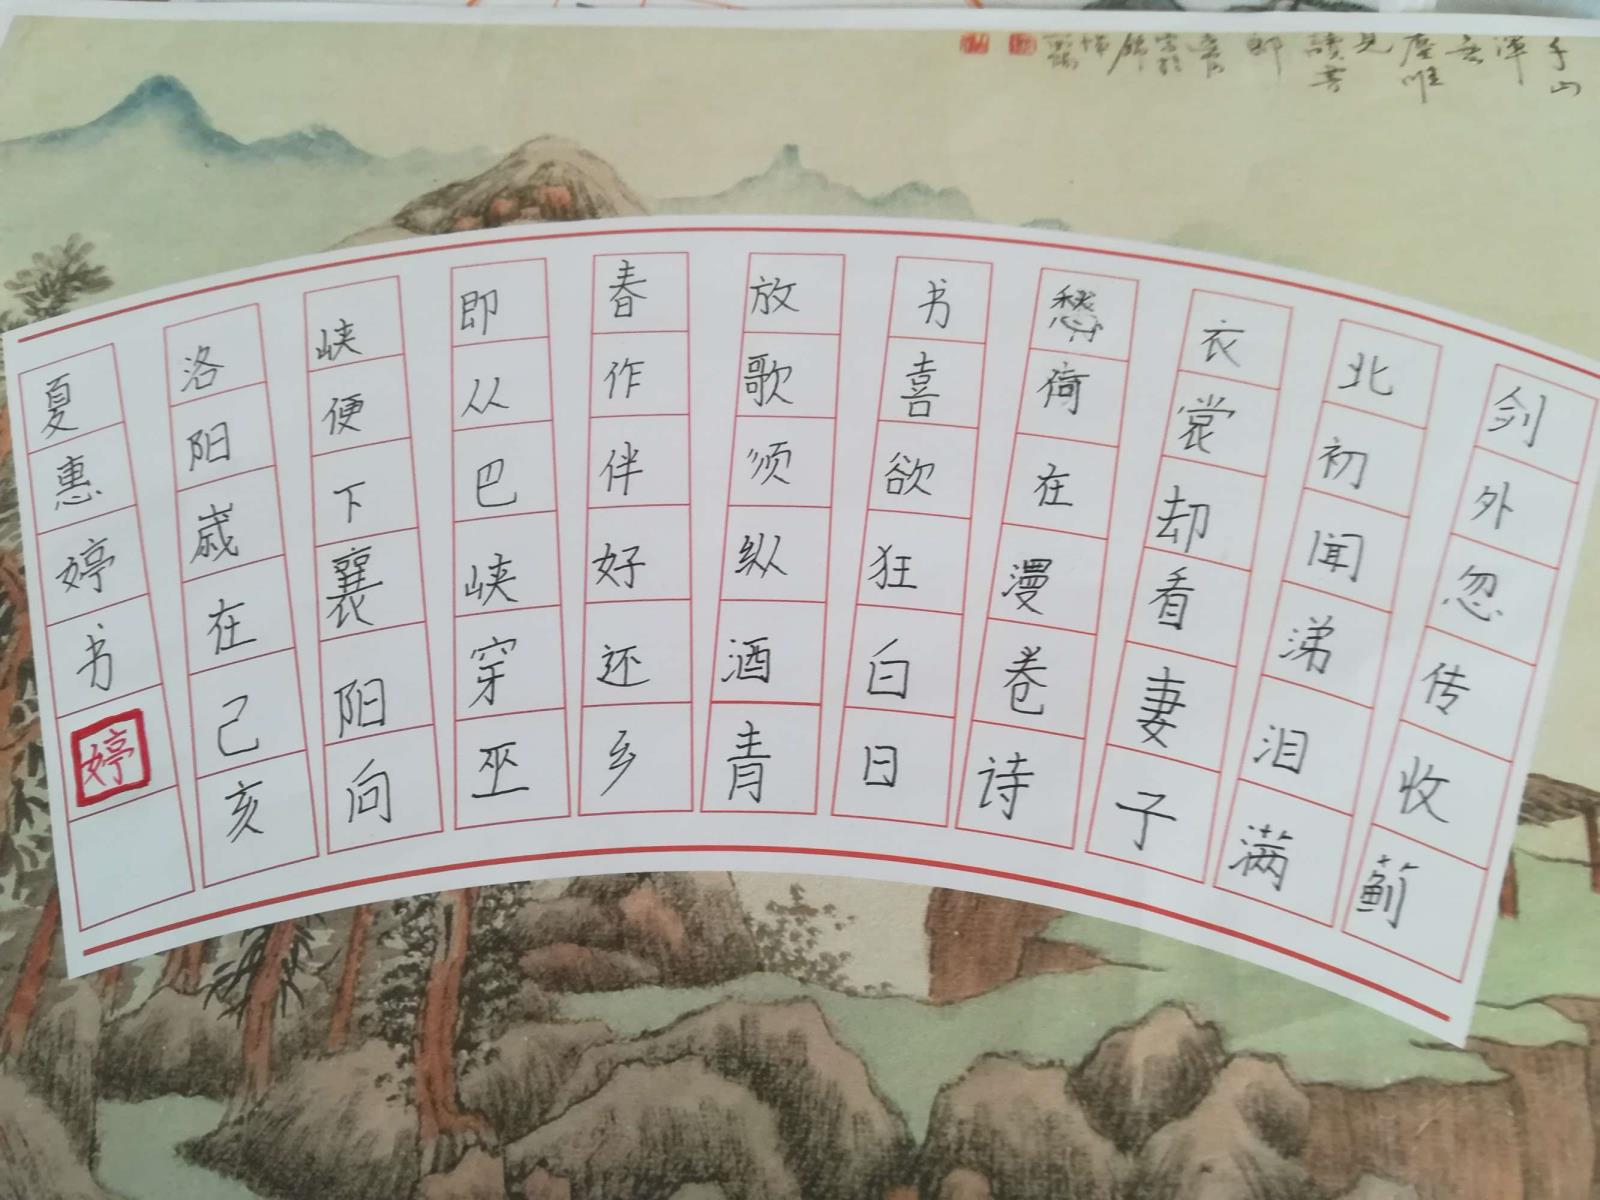 剑外忽传收蓟
北初闻涕泪满
衣裳却看妻子
愁倚在漫卷诗
书喜欲狂白日
放歌须纵酒青
春作伴好还乡
即从巴峡穿巫
峡便下襄阳向
洛阳歳在己亥
夏惠婷书
婷